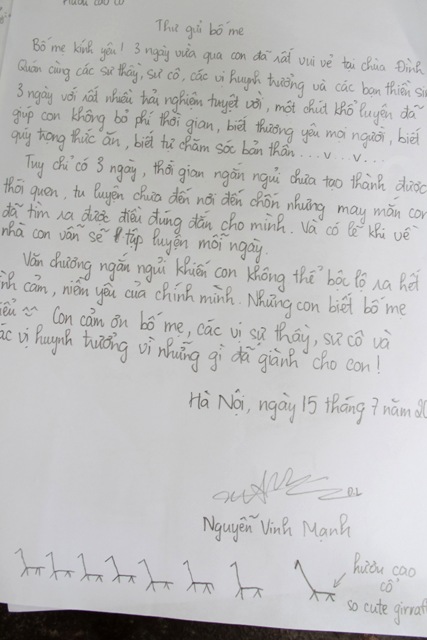 hươu cao cổ
Thư gửi bố mẹ
Bố mẹ kính yêu! 3 ngày vừa qua con đã rất vui vẻ tại chùa Đình
Quán cùng các sư thầy, sư cô, các vị huynh trưởng và các bạn thiền sin
3 ngày với rất nhiều trải nghiệm tuyệt vời, một chút khổ luyện đã
giúp con không bỏ phí thời gian, biết thương yêu mọi người, biết
quý trọng thức ăn, biết tự chăm sóc bản thân ... v ... v...
Tuy chỉ có 3 ngày, thời gian ngắn ngủi chưa tạo thành được
thói quen, tu luyện chưa đến nơi đến chốn nhưng may mắn con
đã tìm ra được điều đúng đắn cho mình. Và có lẽ khi về
nhà con vẫn sẽ tập luyện mỗi ngày.
Văn chương ngắn ngủi khiến con không thể bộc lộ ra hết
ình cảm, niềm yêu của chính mình. Nhưng con biết bố mẹ
iểu ~ Con cảm ơn bố mẹ, các vị sư thầy, sư cô và
ác vị huynh trưởng vì những gì đã giành cho con!
Hà Nội, ngày 15 tháng 7 năm 20
Nguyễn Vinh Mạnh
hươu cao
cổ
so cute girraf